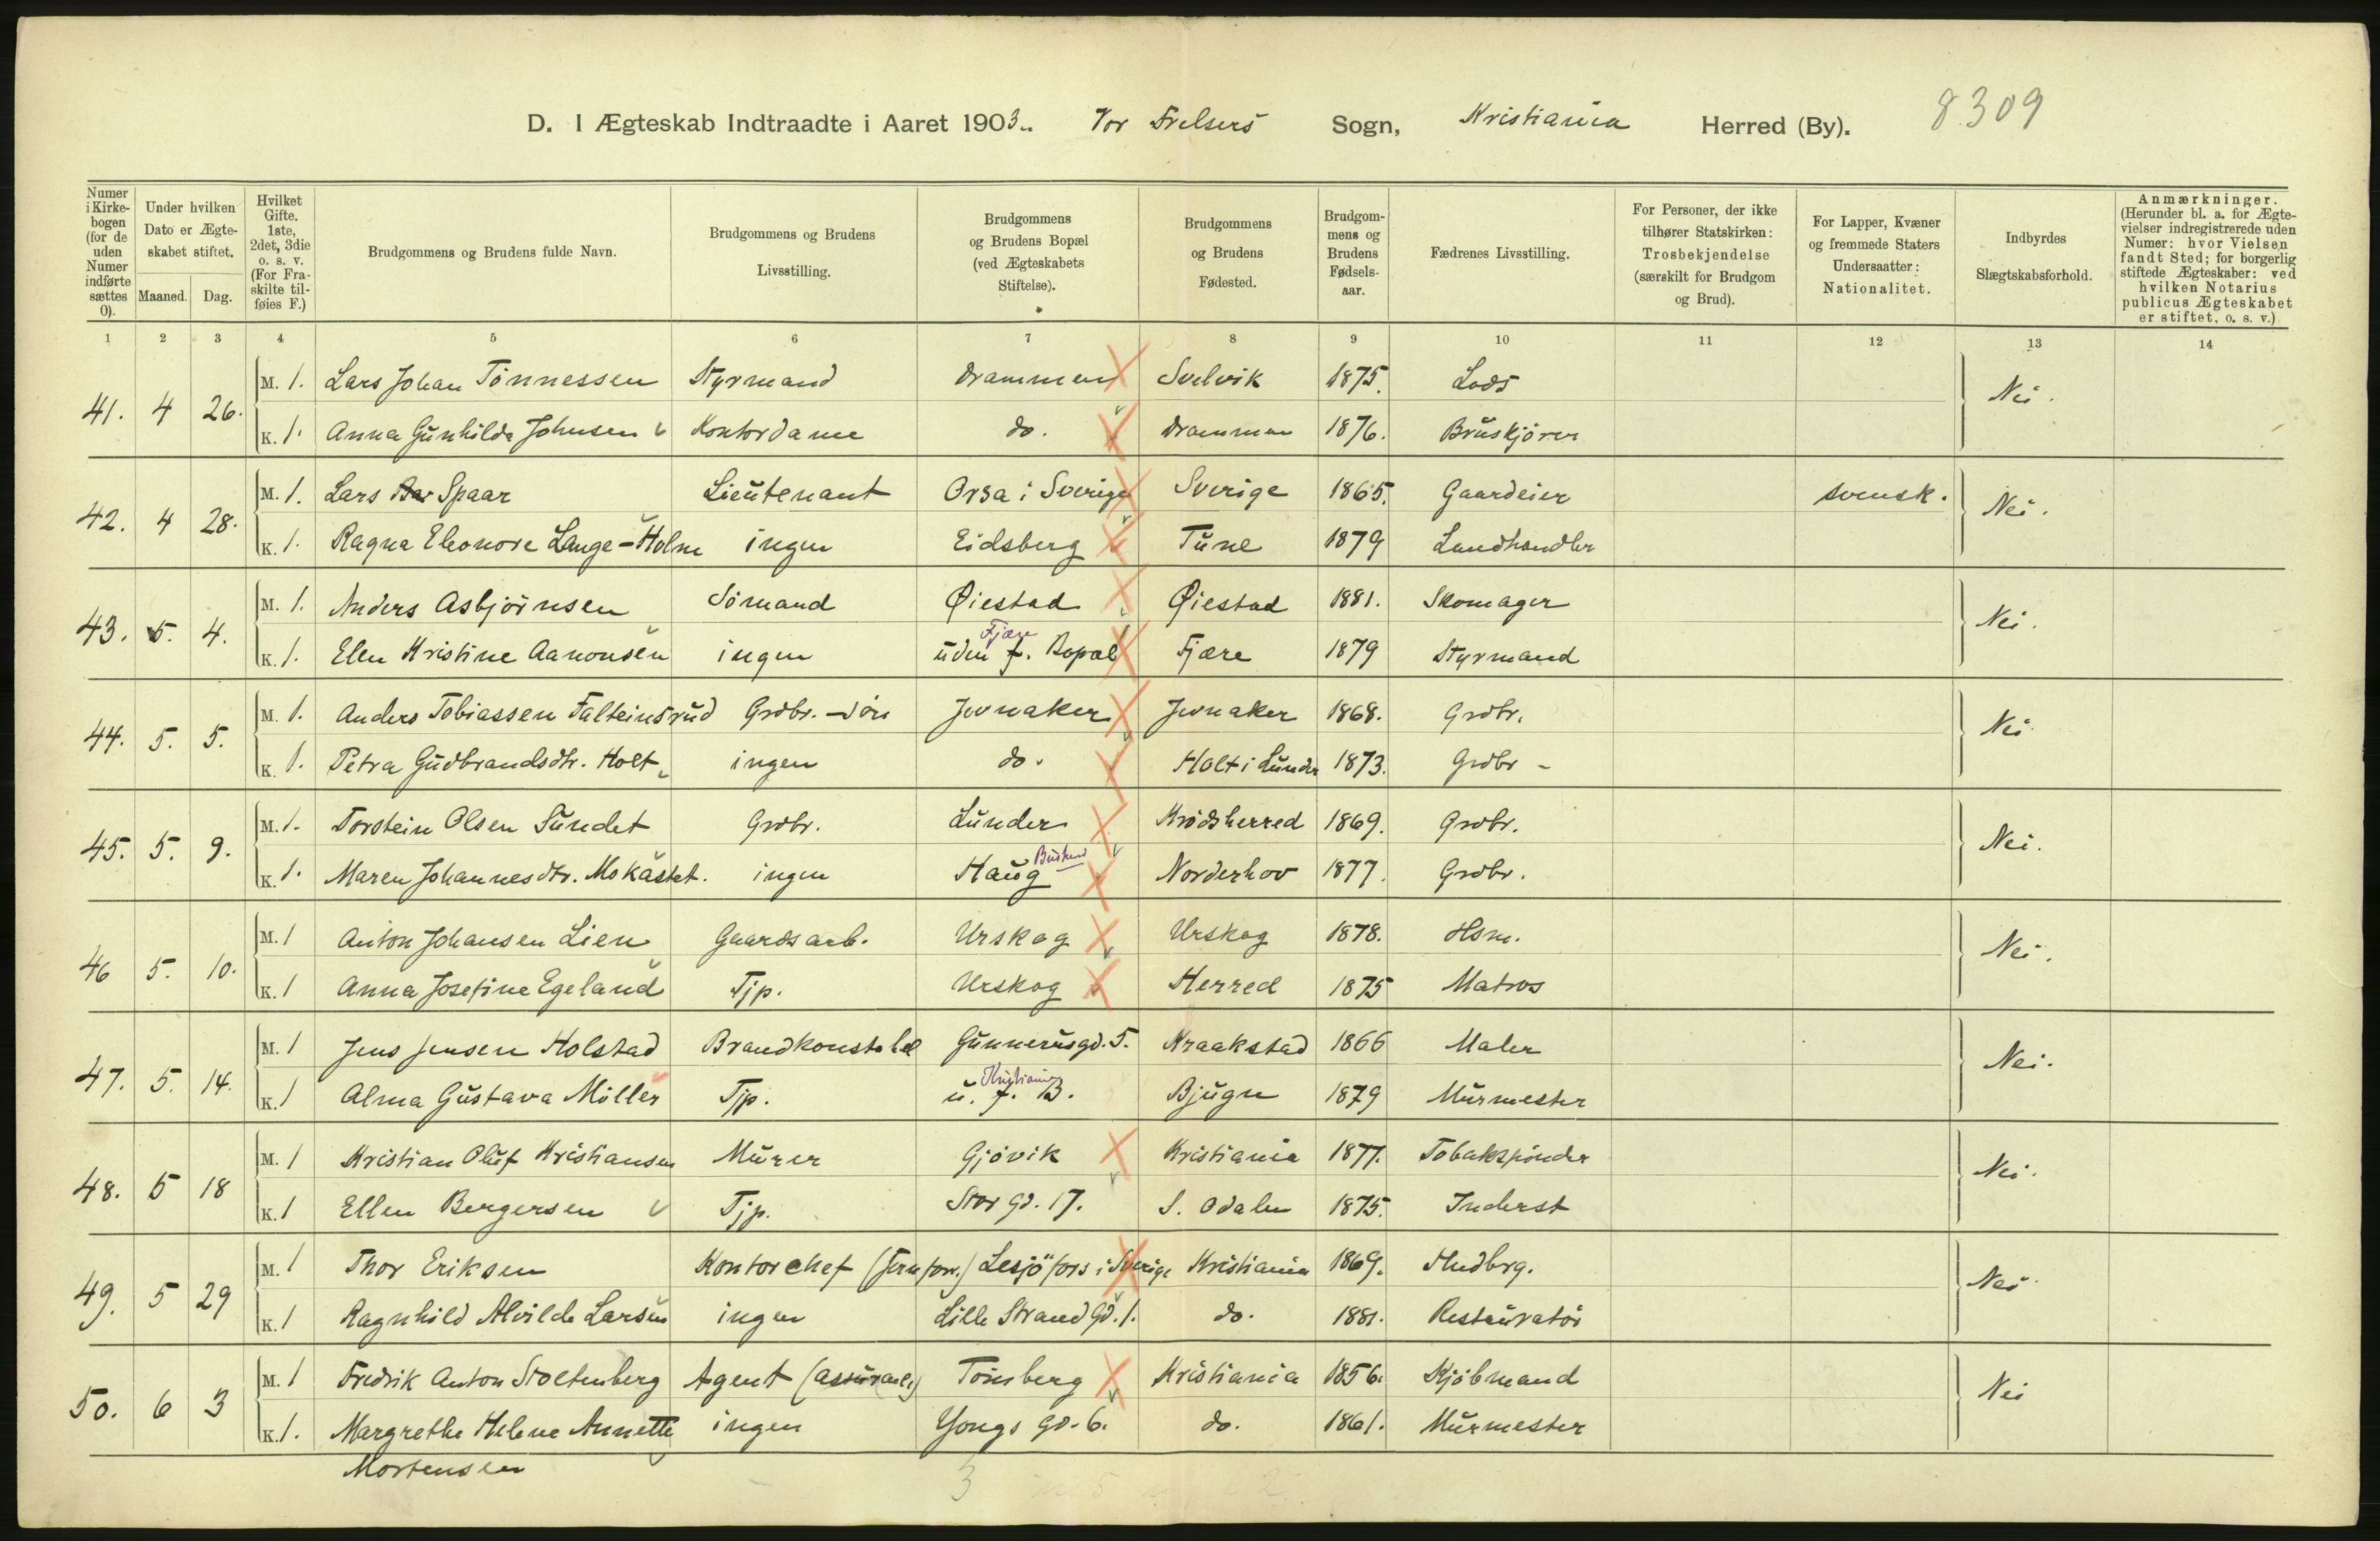 D. I Ægteskab Indtraadte i Aaret 1903. Vor Frelsers Sogn, Kristiania Herred (By). 8309
Numer i Kirkebogen (for de uden Numer indførte sættes 0). | Under hvilken Dato er Ægteskabet stiftet. Maaned. Dag. | Hvilket Gifte. 1ste, 2det, 3die o. s. v. (For Fraskilte tilføies F.) | Brudgommens og Brudens fulde Navn. | Brudgommens og Brudens Livsstilling. | Brudgommens og Brudens Bopæl (ved Ægteskabets Stiftelse). | Brudgommens og Brudens Fødested. | Brudgommens og Brudens Fødselsaar. | Fædrenes Livsstilling. | For Personer, der ikke tilhører Statskirken: Trosbekjendelse (særskilt for Brudgom og Brud). | For Lapper, Kvæner og fremmede Staters Undersaatter: Nationalitet. | Indbyrdes Slægtskabsforhold. | Anmærkninger. (Herunder bl. a. for Ægtevielser indregistrerede uden Numer: hvor Vielsen fandt Sted; for borgerlig stiftede Ægteskaber: ved hvilken Notarius publicus Ægteskabet er stiftet, o. s. v.)
1 2 3 4 5 6 7 8 9 10 11 12 13 14
41. 4 26. M. 1. Lars Johan Tönnessen Styrmand Drammen Svelvik 1875. Lods Nei.
K. 1. Anna Gunhilda Johnsen Kontordame do. Drammen 1876. Bruskjörer
42. 4 28. M. 1. Lars Spaar Lieutenant Orsa i Sverige Sverige 1865. Gaardeier svensk. Nei.
K. 1. Ragna Eleonore Lange-Holm ingen Eidsberg Tune 1879 Landhandler
43. 5. 4. M. 1. Anders Asbjörnsen Sömand Øiestad Øiestad 1881. Skomager Nei.
K. 1. Elen Kristine Aanonsen ingen uden f. Bopæl Fjære Fjære 1879 Styrmand
44. 5. 5. M. 1. Anders Tobiassen Falteinsrud Grdbr.-sön Jevnaker Jevnaker 1868. Grdbr. Nei
K. 1. Petra Gudbrandsdtr. Holt ingen do. Holt i Lunder 1873. Grdbr
45. 5. 9. M. 1. Torstein Olsen Sundet Grdbr. Lunder Krödsherred 1869. Grdbr. Nei.
K. 1. Maren Johannesdtr. Mokastet. ingen Haug Buskerud Norderhov 1877. Grdbr.
46 5. 10. M. 1 Anton Johansen Lien Gaardsarb. Urskog Urskog 1878. Hsm. Nei.
K. 1 Anna Josefine Egeland Tjp. Urskog Herred 1875 Matros
47. 5. 14. M. 1 Jens Jensen Holstad Brandkonstabel Gunnerusgd. 5. Kraakstad 1866 Maler Nei.
K. 1 Alma Gustava Möller Tjp. u. f. B. Kristiania Bjugn 1879 Murmester
48. 5 18 M. 1 Kristian Oluf Kristiansen Murer Gjövik Kristiania 1877. Tobakspinder Nei.
K. 1 Ellen Bergersen Tjp. Stor gd. 17. S. Odalen 1875. Inderst
49. 5 29 M. 1 Thor Eriksen Kontorchef (Jernforr.) Lesjöfors i Sverige Kristiania 1869. Hndbrg. Nei
K. 1 Ragnhild Alvilde Larsen ingen Lille Strand Gd. 1. do. 1881. Restauratör
50. 6 3 M. 1 Fredrik Anton Stoltenberg Agent (assurance) Tönsberg Kristiania 1856. Kjöbmand Nei
K. 1. Margrethe Helene Annette ingen Yongs gd. 6. do. 1861. Murmester
Mortensen
3